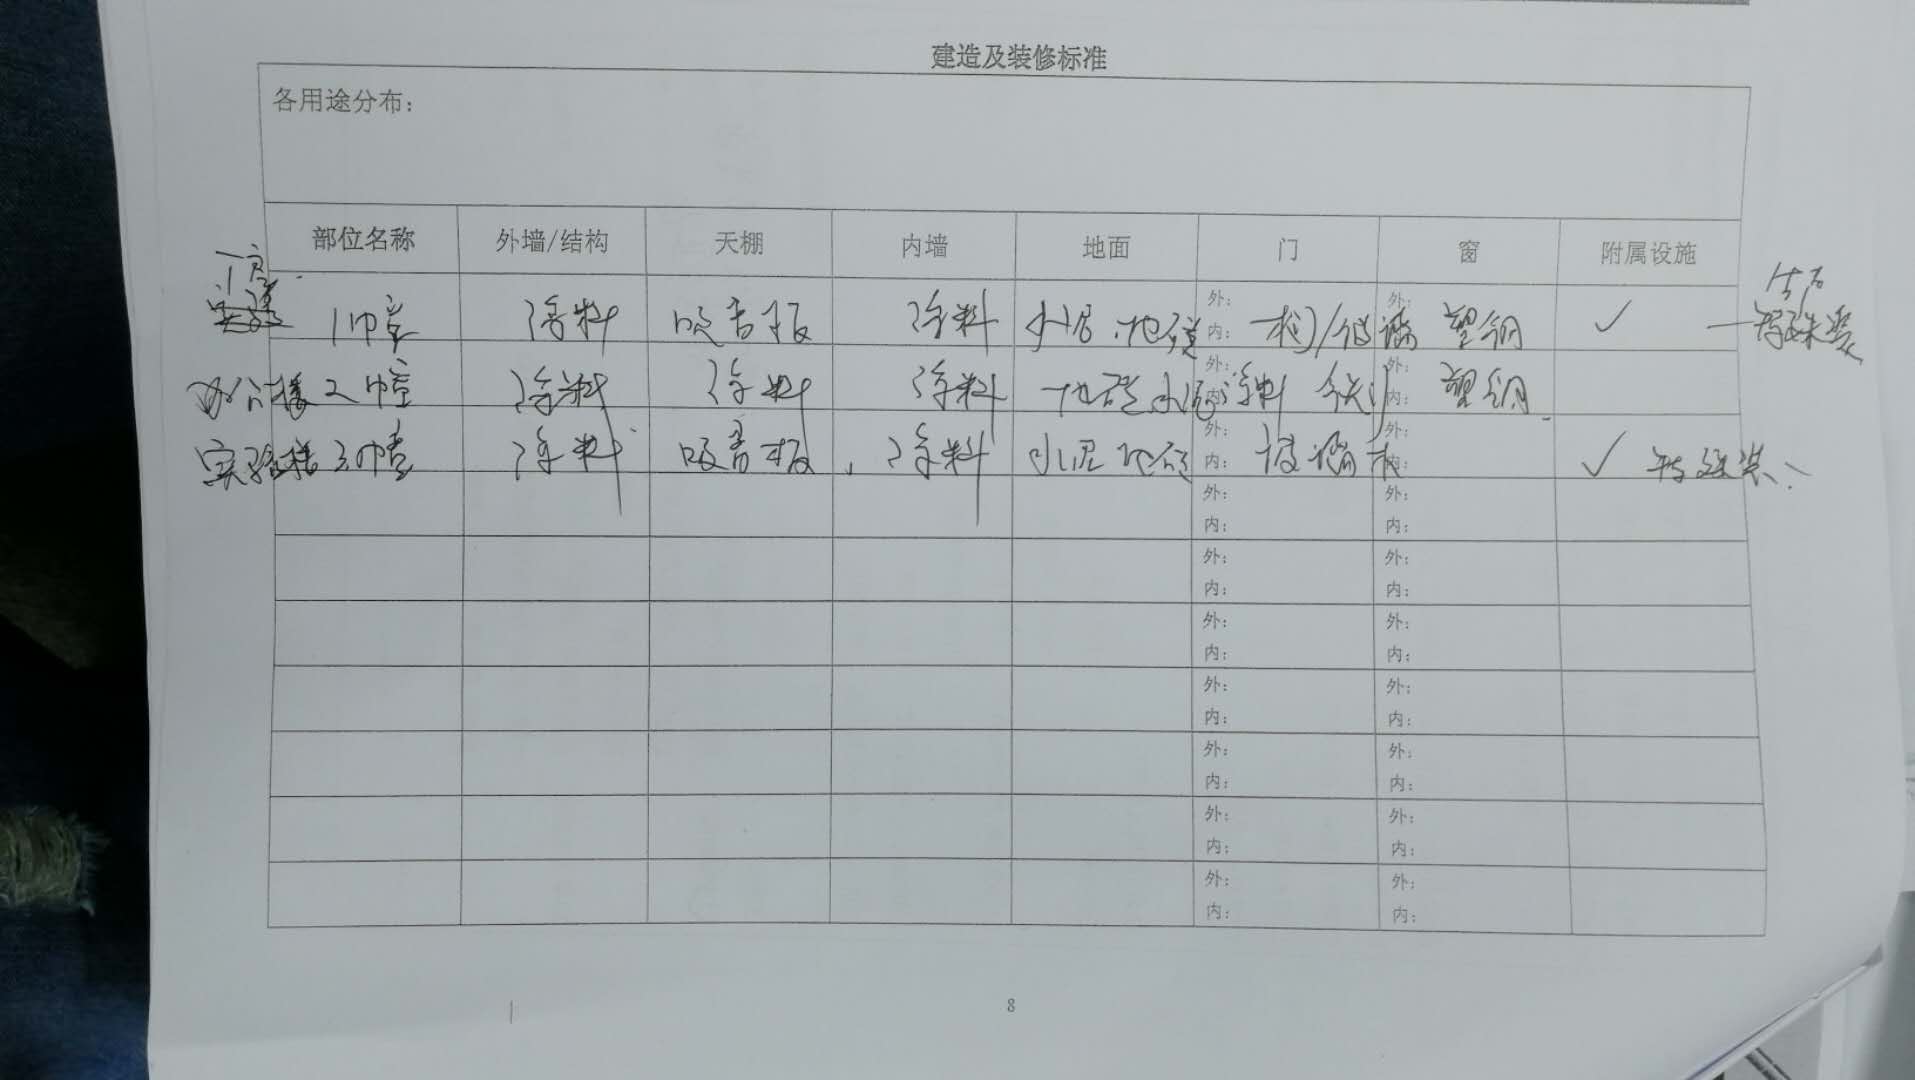 建造及装修标准
各用途分布：
部位名称 外墙/结构 天棚 内墙 地面 门 窗 附属设施
厂房
1幢 涂料 吸音板 涂料 水泥.地砖 外： 内： 外： 塑钢 ✓
特殊装
办公楼 2幢 涂料 涂料 涂料 地砖 水泥 外： 内： 外： 内： 塑钢
实验楼 3幢 涂料 吸音板 涂料 水泥 地砖 外： 内： 玻璃 外： 内： ✓ 特殊装
外： 外：
内： 内：
外： 外：
内： 内：
外： 外：
内： 内：
外： 外：
内： 内：
外： 外：
内： 内：
外： 外：
内： 内：
外： 外：
内： 内：
8